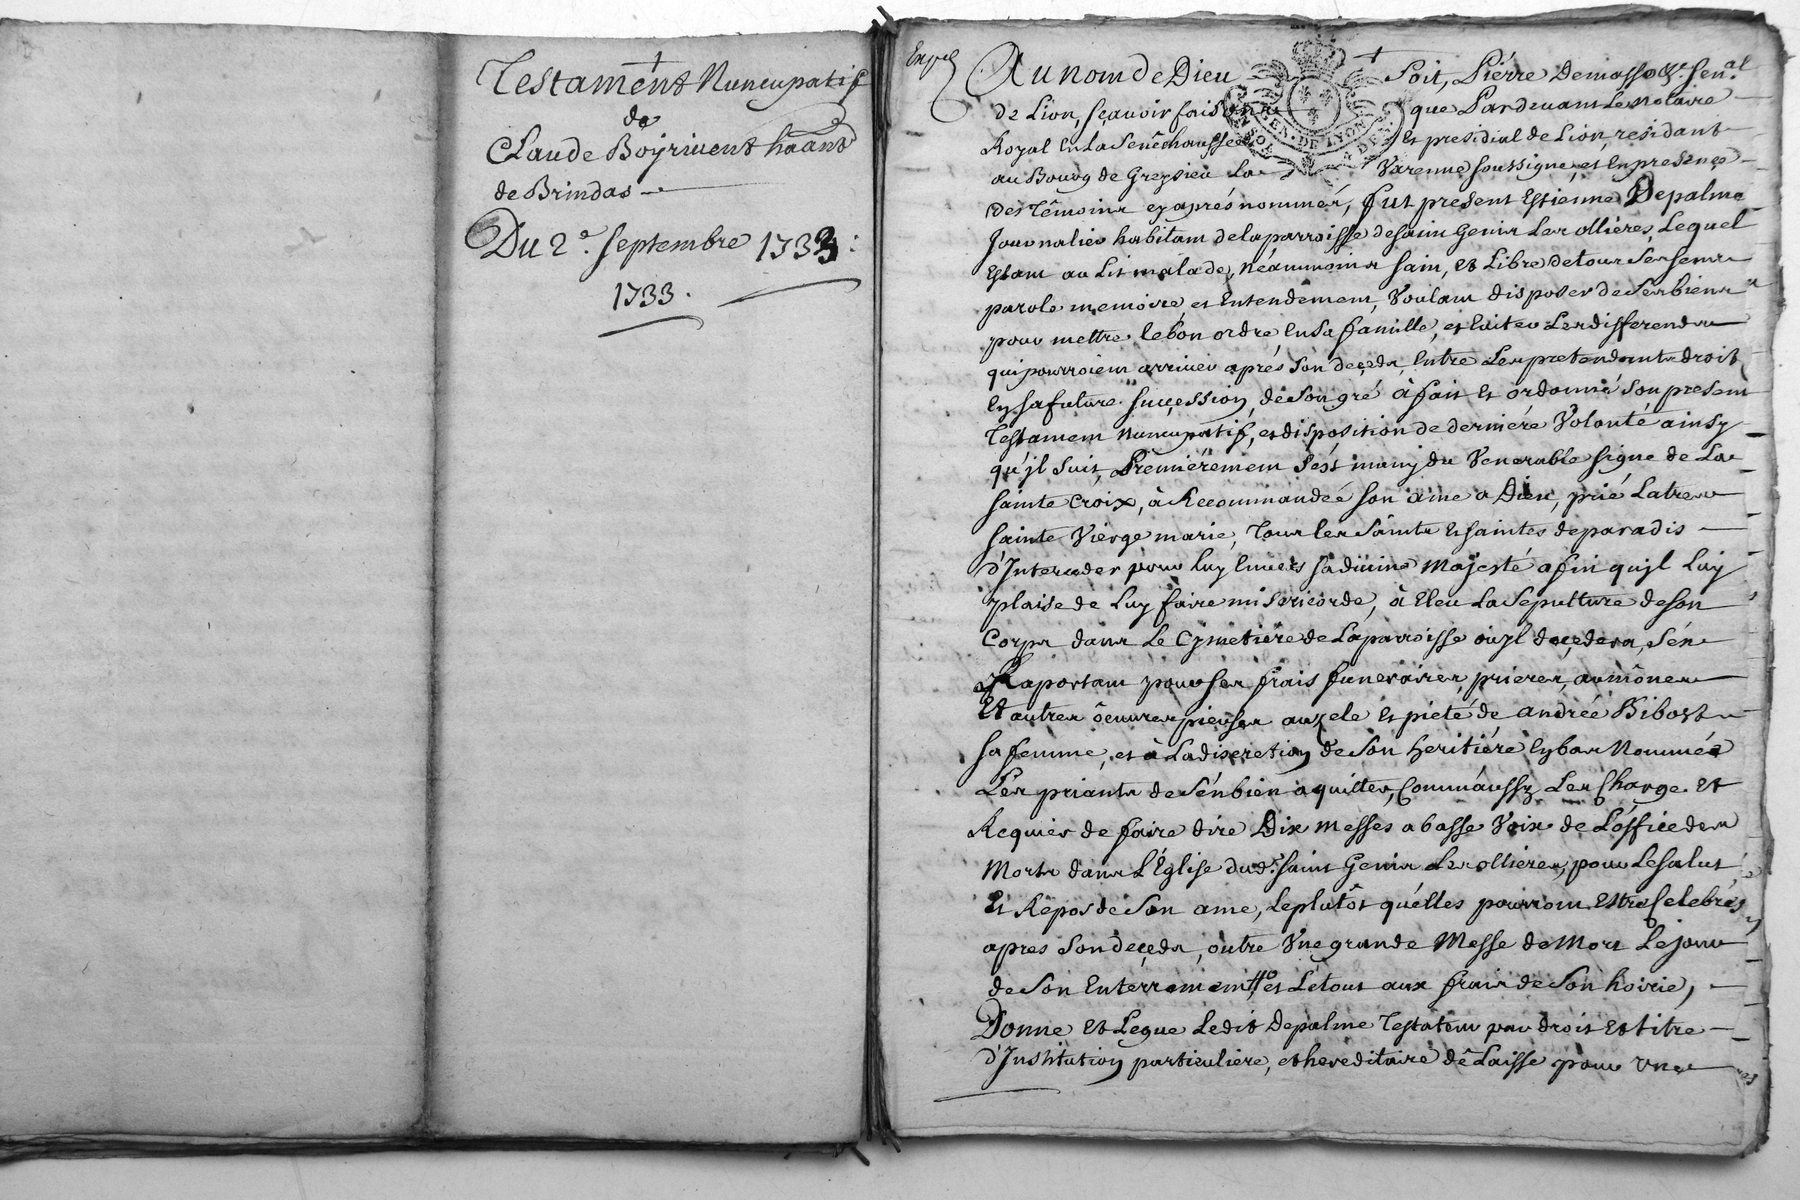 Testament Nuncupatif
de
Claude Boyrivent haant
de Brindas
Du 2e. septembre 1733:
1733.
Expé
Au nom de Dieu Soit, Pierre Demasso &c. senal
de Lion, sçavoir faisons que Pardevant Le notaire
Royal En La Senêchaussée Et presidial de Lion, residant
au Bourg de Grezieu La Varenne soussigné, et En presence
des Têmoins cy aprés nommés, fut present Estienne Depalme
Journalier habitant de la parroisse de saint Genis Les ollieres, Lequel
Estant au Lit malade, Néanmoins sain, Et Libre de tous Ses sens
parole memoire, et Entendement, Voulant disposer de Ses biens
pour mettre le bon ordre En sa famille, et Eviter Les differends
qui pourroient arriver aprés Son deçeds, Entre Les pretendants droit
En sa future succession, de Son gré à fait Et ordonné Son present
Testament Nuncupatif, et disposition de derniére Volonté ainsy
qu'jl Suit, Premiérement S'est muny du Venerable signe de La
sainte Croix, à Recommandeé son ame a Dieu, prié La tres
sainte Viérge marie, Tous les Saints Et saintes de paradis
d'Interceder pour luy Envers sa divine Majesté afin qujl Luy
plaise de Luy faire misericorde, à Eleu La Sepulture de son
Corps dans Le Cymetiére de La parroisse ou jl deçedera, S'en
Raportant pour ses frais funeraires, prieres, aumônes
Et autres oeuvres pieuses au zele Et pieté de andrée Bibost
sa femme, et à La discretion de Son heritiére Cy bas Nommée
Les priants de S'en bien aquitter, Comm'aussy Les Charge Et
Requier de faire dire Dix messes a basse Voix de L'office des
Morts dans L'Eglise dud. saint Genis Les ollieres, pour Le salut
Et Repos de Son ame, Le plutôt qu'elles pourront Estre Celebrés
apres Son deçeds, outre Vne grande Messe de Mort Le jour
de Son Enterrement, et Le tout aux frais de Son hoirie,
Donne Et Legue Ledit Depalme Testateur par droit Et titre
d'Institution particuliere, et hereditaire dê Laisse pour Vne